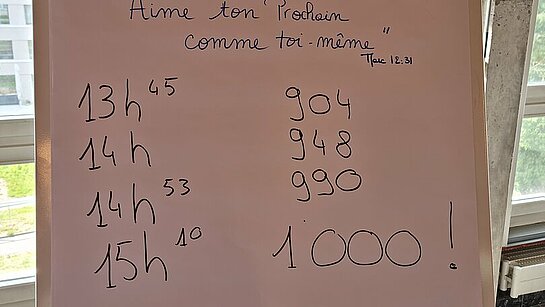 Aime ton "Prochain
comme toi-même"
Marc 12.31
13h45 904
14h 948
14h53 990
15h10 1000!